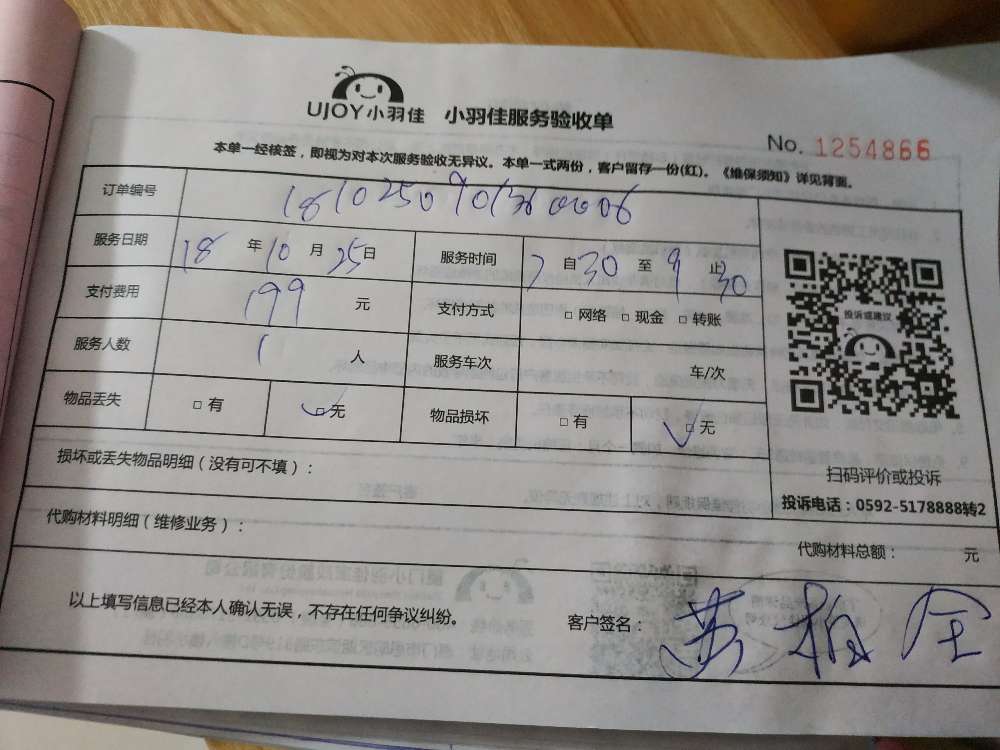 UJOY小羽佳 小羽佳服务验收单
No. 1254866
本单一经核签，即视为对本次服务验收无异议。本单一式两份，客户留存一份(红)。《维保须知》详见背面。
订单编号 1810250901360006
服务日期 18 年 10 月 25 日 服务时间 7 自 30 至 9 止 30
支付费用 199 元 支付方式 □ 网络 □ 现金 □ 转账
投诉或建议
服务人数 1 人 服务车次 车/次
物品丢失 □ 有 □ 无 物品损坏 □ 有 □ 无
扫码评价或投诉
损坏或丢失物品明细（没有可不填）：
投诉电话：0592-5178888转2
代购材料明细（维修业务）：
代购材料总额： 元
以上填写信息已经本人确认无误，不存在任何争议纠纷。 客户签名：